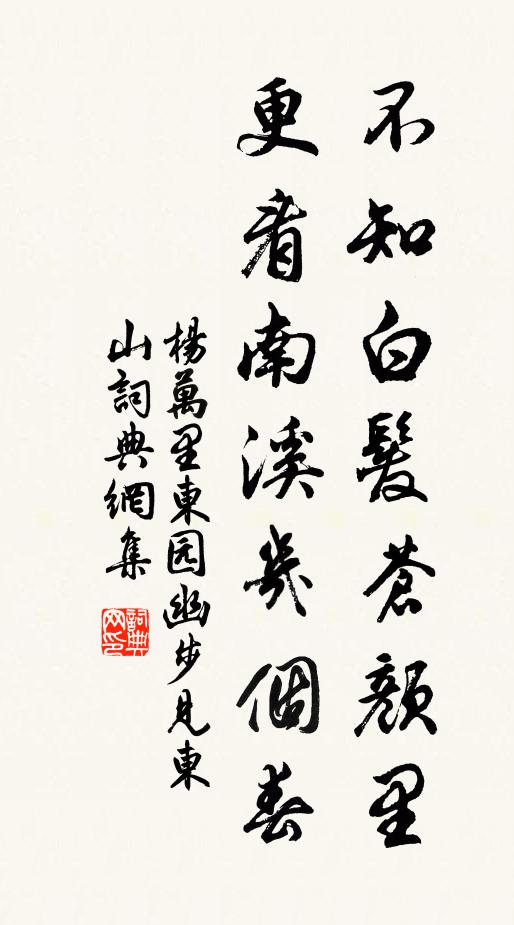 不知白髮蒼顏里
更看南溪幾個春
楊萬里東园幽步見東
山詞典網集
詞典
网印